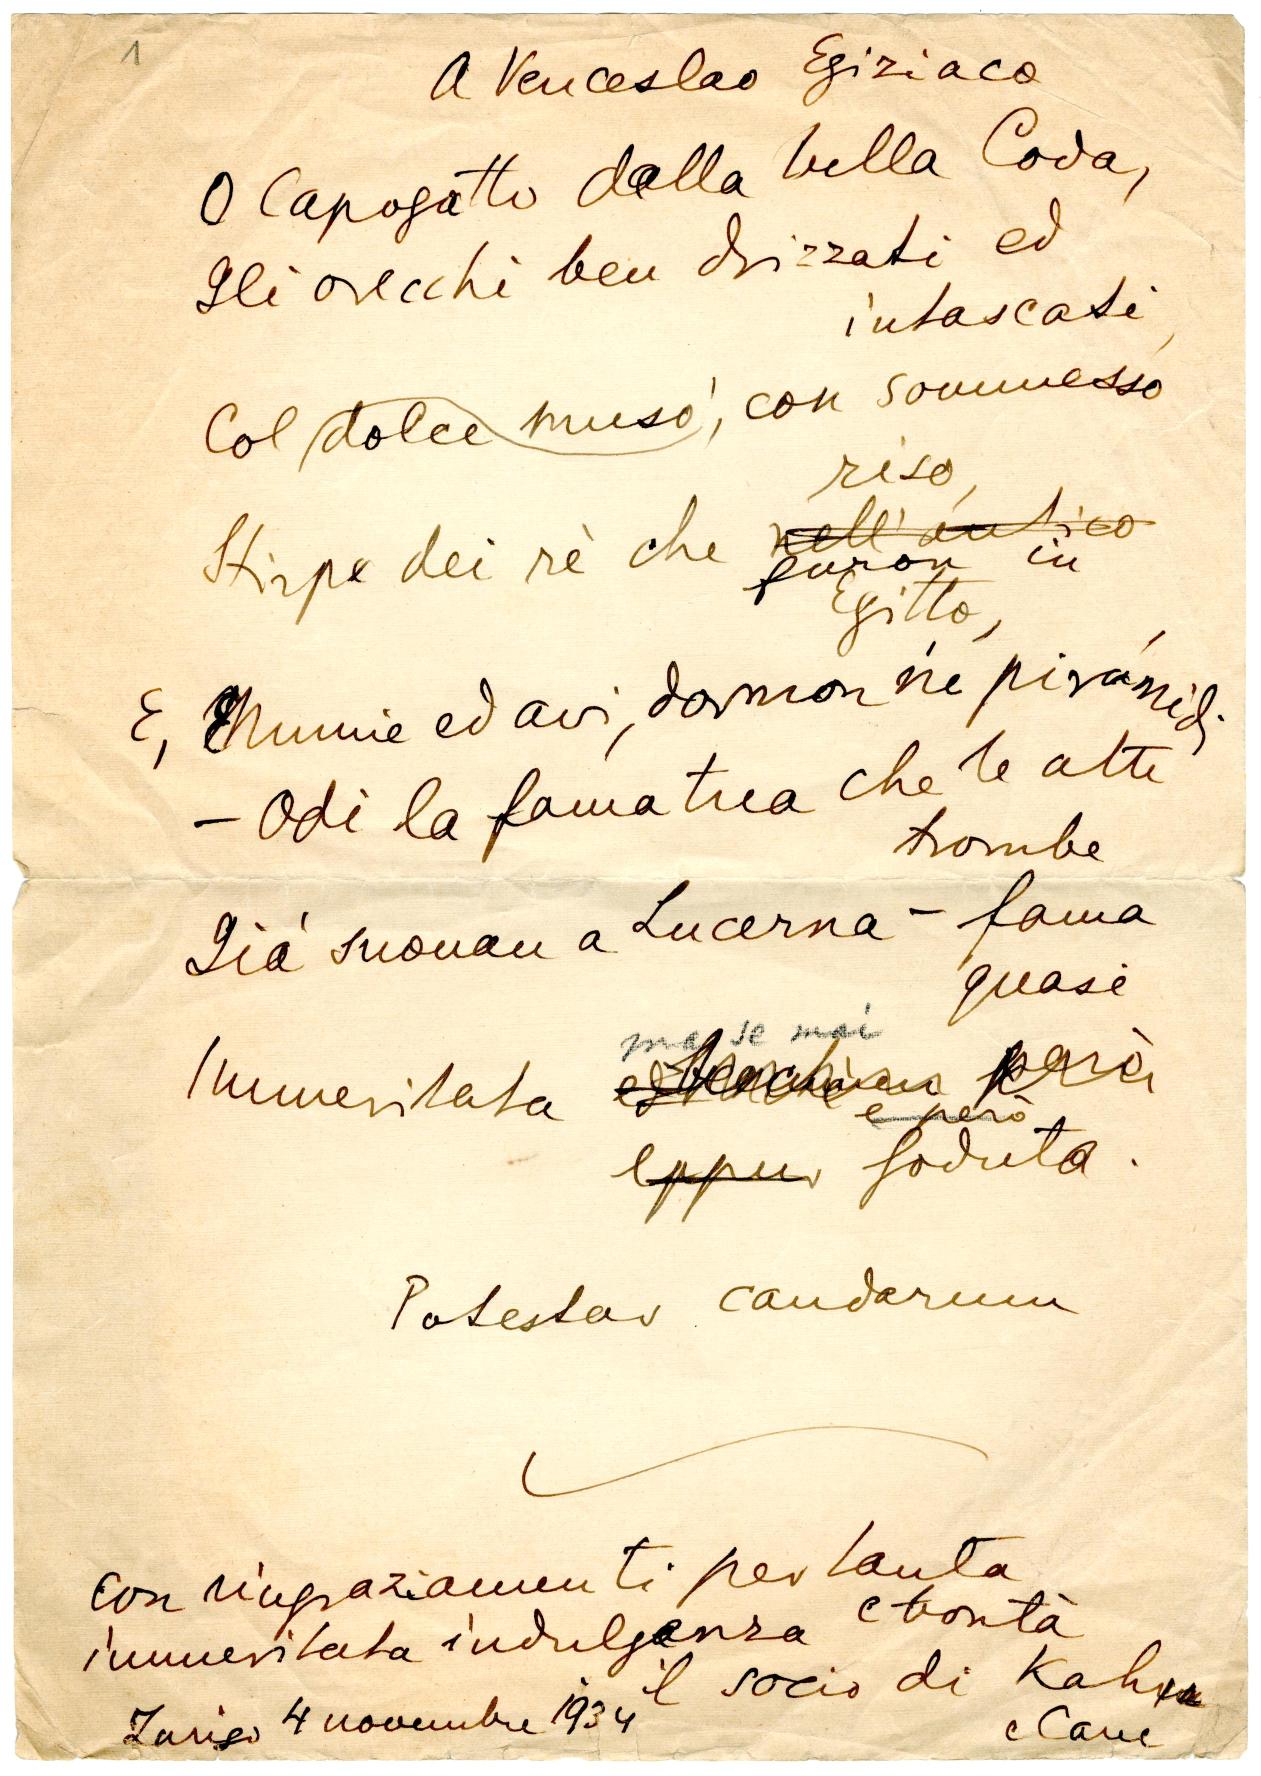 1
A Venceslao Egiziaco
O Capogatto dalla bella Coda,
Gli orecchi ben drizzati ed
intascati,
Col dolce muso, con sommesso
riso,
Stirpe dei rè che nell'antico
furon in
Egitto,
E, Mummie ed avi, dormon ne' piramidi
- Odi la fama tua che le alte
trombe
Già suonan a Lucerna - fama
quasi
ma se mai
Immeritata però
e però
eppur goduta.
Potestas caudarum
con ringraziamenti per tanta
immeritata indulgenza e bontà
il socio di Kahn
Zurigo 4 novembre 1934
e Cane